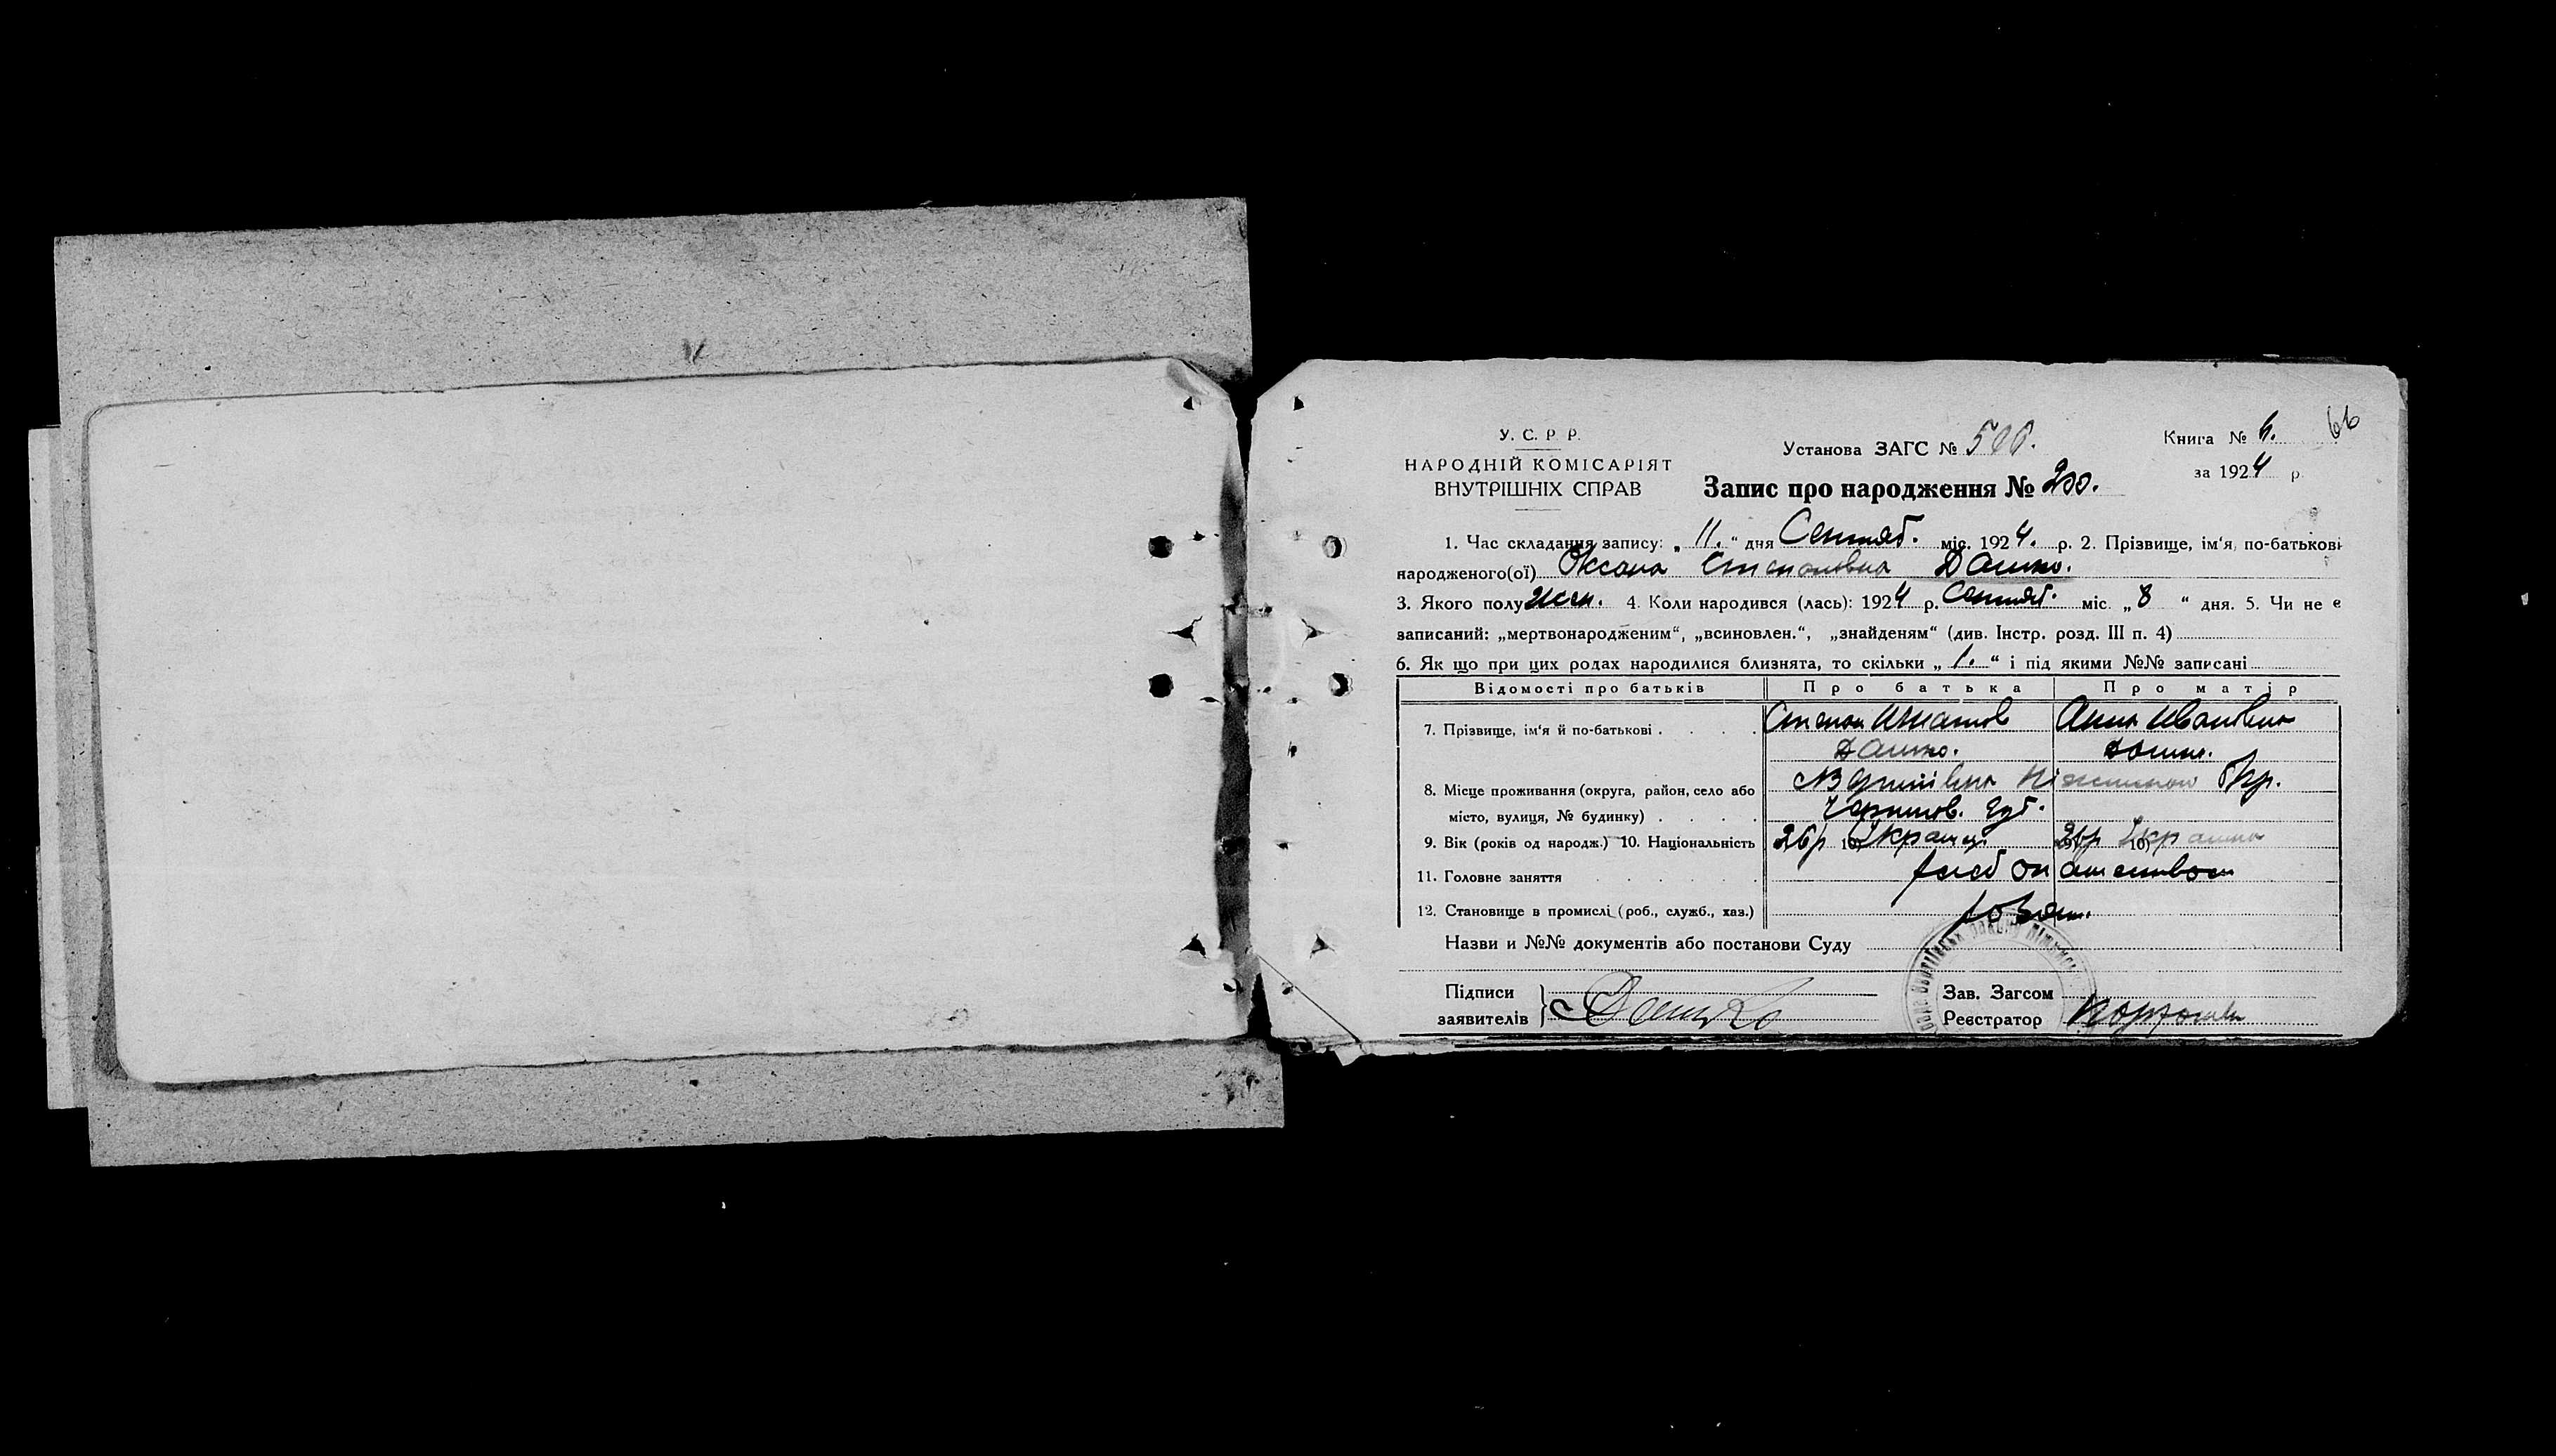 66
У. С. Р. Р.
НАРОДНІЙ КОМІСАРІЯТ
ВНУТРІШНІХ СПРАВ
Установа ЗАГС №
Книга №
за 1924 р.
Запис про народження № 200.
1. Час складання запису: „ 11. “ дня Сентяб. міс. 1924. р. 2. Прізвище, ім'я, по-батькові
народженого(ої) Оксана Степановна Дашко.
3. Якого полу жен. 4. Коли народився (лась): 1924 р. Сентяб. міс. „ 8 “ дня. 5. Чи не є
записаний: „мертвонародженим“, „всиновлен.“, „знайденям“ (див. Інстр. розд. III п. 4)
6. Як що при цих родах народилися близнята, то скільки „ 1. “ і під якими №№ записані
Відомости про батьків Про батька Про матір
7. Прізвище, ім'я й по-батькові Степан Игнатов Анна Ивановна
Дашко. Дашко.
8. Місце проживання (округа, район, село або Окр.
місто, вулиця, № будинку) Чернигов. Губ.
9. Вік (років од народж.) 10. Національність 26р 10) 10)
11. Головне заняття
12. Становище в промислі (роб., служб., хаз.)
Назви и №№ документів або постанови Суду
Підписи
заявителів Дашко
Зав. Загсом
Реєстратор